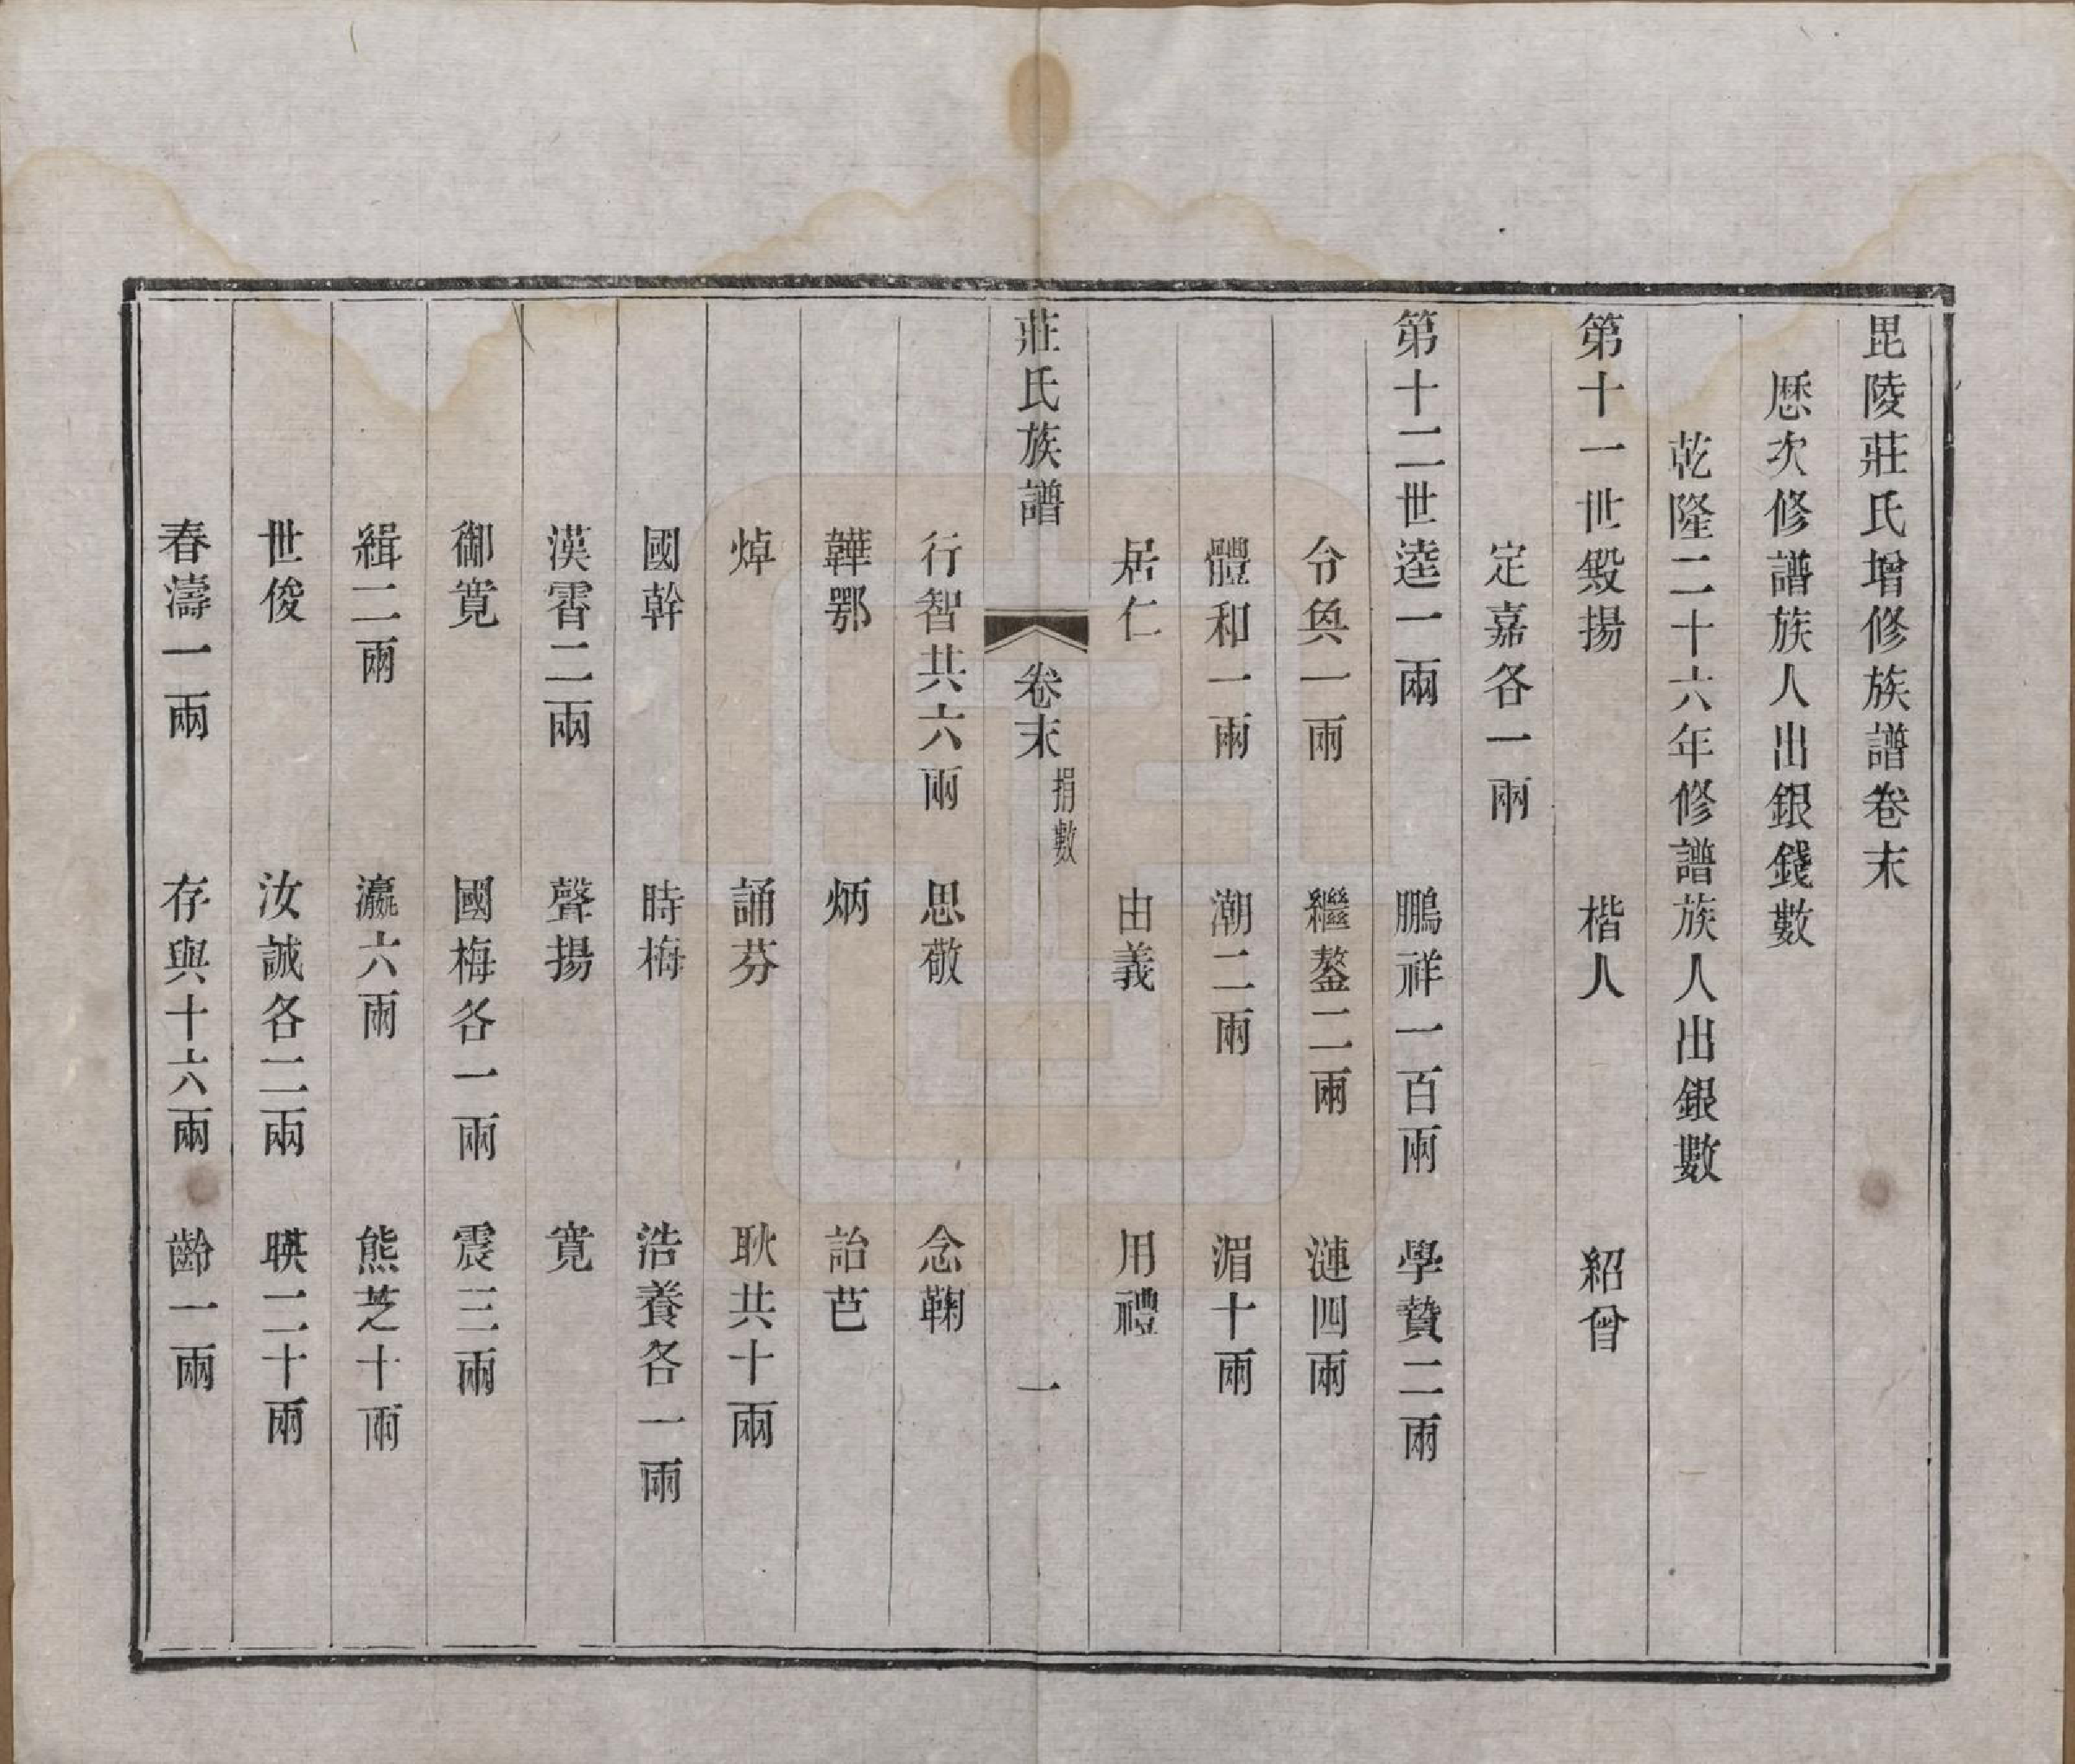 毘陵莊氏增修族譜卷末
歷次修譜族人出銀錢數
乾隆二十六年修譜族人出銀數
第十一世毀揚　楷人　紹曾
定嘉各一兩
第十二世逵一兩　鵬祥一百兩　學贊二兩
兮奐一兩　繼鏊二兩　漣四兩
體和一兩　潮二兩　湄十兩
居仁　由義　用禮
莊氏族譜　卷末　捐數　一
行智共六兩　思敬　念鞠
韡鄂　炳　詒芑
焯　誦芬　耿共十兩
國幹　時梅　浩養各一兩
漢霄二兩　聲揚　寬
御寬　國梅各一兩　震三兩
緝二兩　瀛六兩　熊芝十兩
世俊　汝誠各二兩　暎二十兩
春濤一兩　存與十六兩　齡一兩